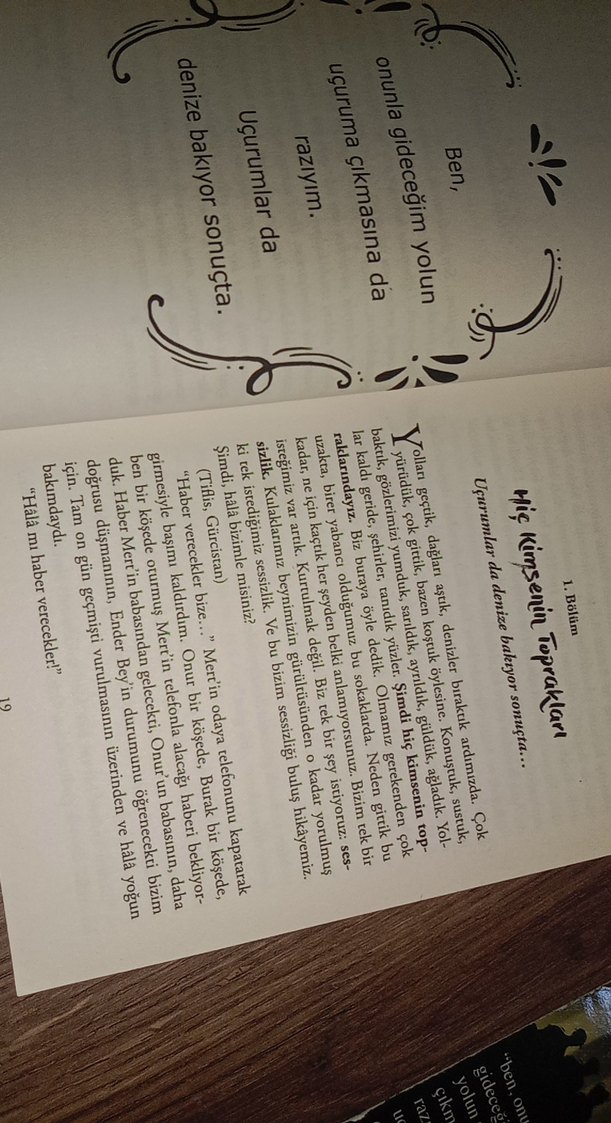 Ben,
onunla gideceğim yolun
uçuruma çıkmasına da
razıyım.
Uçurumlar da
denize bakıyor sonuçta.
1. Bölüm
Hiç Kimsenin Toprakları
Uçurumlar da denize bakıyor sonuçta…
Yolları geçtik, dağları aştık, denizler bıraktık ardımızda. Çok
yürüdük, çok gittik, bazen koştuk öylesine. Konuştuk, sustuk,
baktık, gözlerimizi yumduk, sarıldık, ayrıldık, güldük, ağladık. Yol-
lar kaldı geride, şehirler, tanıdık yüzler. Şimdi hiç kimsenin top-
raklarındayız. Biz buraya öyle dedik. Olmamız gerekenden çok
uzakta, birer yabancı olduğumuz bu sokaklarda. Neden gittik bu
kadar, ne için kaçtık her şeyden belki anlamıyorsunuz. Bizim tek bir
isteğimiz var artık. Kurtulmak değil. Biz tek bir şey istiyoruz: ses-
sizlik. Kulaklarımız beynimizin gürültüsünden o kadar yorulmuş
ki tek istediğimiz sessizlik. Ve bu bizim sessizliği buluş hikâyemiz.
Şimdi, hâlâ bizimle misiniz?
(Tiflis, Gürcistan)
“Haber verecekler bize…” Mert’in odaya telefonunu kapatarak
girmesiyle başımı kaldırdım. Onur bir köşede, Burak bir köşede,
ben bir köşede oturmuş Mert’in telefonla alacağı haberi bekliyor-
duk. Haber Mert’in babasından gelecekti, Onur’un babasının, daha
doğrusu düşmanının, Ender Bey’in durumunu öğrenecekti bizim
için. Tam on gün geçmişti vurulmasının üzerinden ve hâlâ yoğun
bakımdaydı.
“Hâlâ mı haber verecekler!”
19
“ben, onu
gideceğ
yolun
çıkm
raz
uç